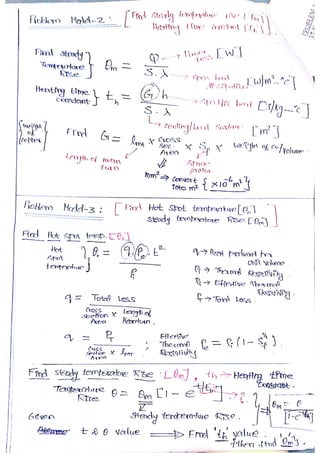 Problem Model-2 : [Find steady temperature rise [θm]
Heating time constant [th]]
PROBLEM
Find steady Temperature Rise } θm = Q / S.λ → Power loss [W]
[W/m²-°C]
Heating time constant } th = G h / S.λ → Specific heat [J/kg-°C]
→ cooling/heat surface [m²]
[weight of copper]
Find G = lmt × Cross Sec. Area × Sp × weight of cu/volume
Length of mean turn
Space factor
mm² ⇒ convert into m² { ×10⁻⁶ m² }
Problem Model-3 : [Find Hot spot temperature [θo]
steady temperature Rise [θm]
Find Hot spot temp. [θo]
Hot spot temperature } θo = q ρe t²
q → Heat produced per unit volume
ρi → Thermal Resistivity
ρe → Effective Thermal Resistivity
Pt → Total loss.
q = Total Loss / Cross section Area × Length of Mean turn.
q = PT / Cross section Area × lmt
Effective Thermal Resistivity ρe = ρi (1 - Sf^½)
Find steady temperature Rise : [θm] th → Heating time constant.
Temperature Rise θ = θm [1 - e^-t/th] → ?
⇒ θm = θ / [1 - e^-t/th]
Steady temperature Rise.
Given t & θ value ⇒ Find 'th' value. then find 'θm'.